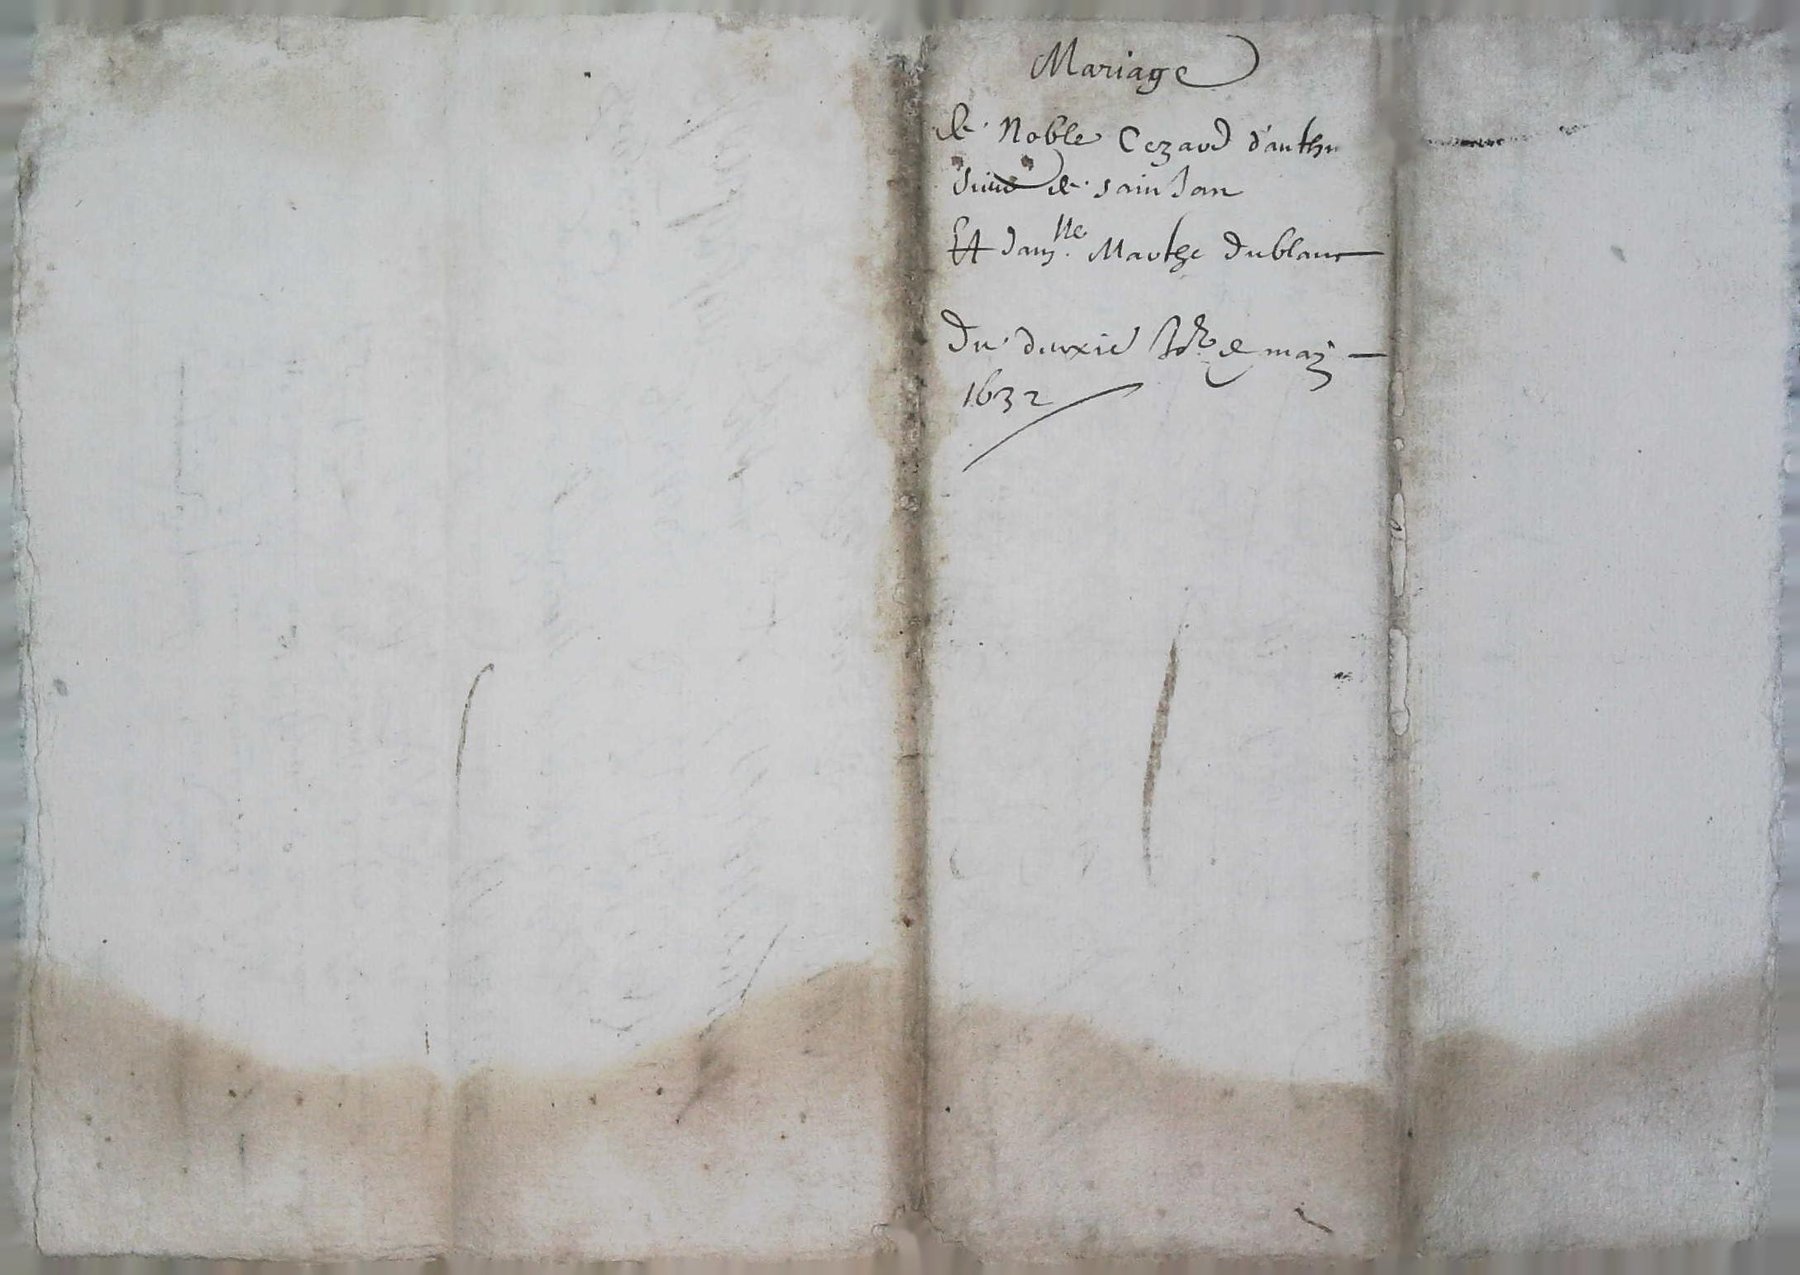 Mariage
de Noble Cezard d'anthu
Sieur de sainJan
Et dam.lle Marthe dublanc
Du duxie de may
1632